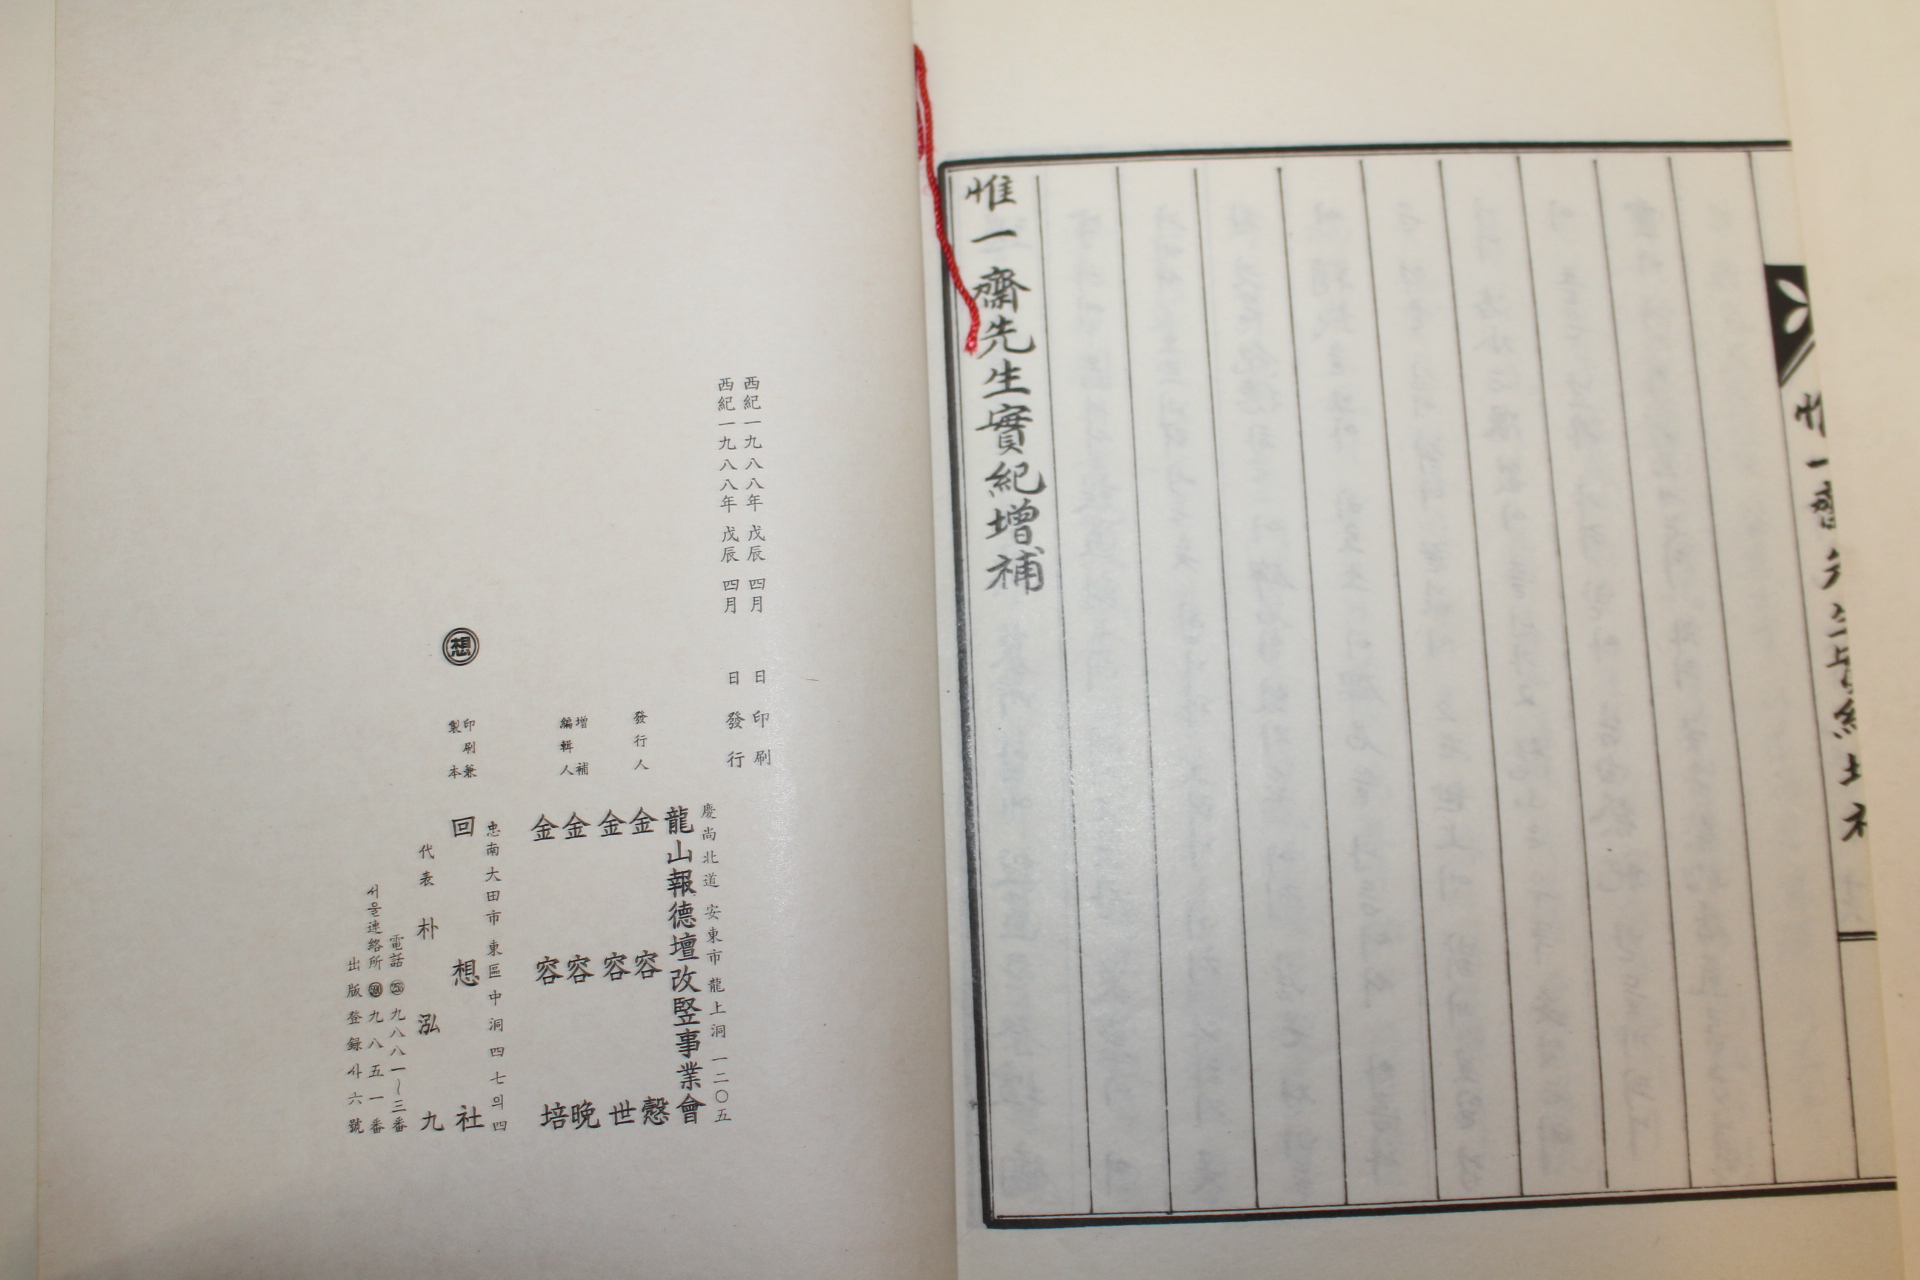 惟一齋先生實紀增補
西紀一九八八年 戊辰 四月 日 印刷
西紀一九八八年 戊辰 四月 日 發行
慶尙北道 安東市 龍上洞 一二〇五
龍山報德壇改竪事業會
發行人 金容慤
金容世
增補
編輯人 金容晩
金容培
忠南大田市 東區 中洞 四七의四
印刷兼
製本 回想社
想
代表 朴泓九
電話 九八八一~三番
서울連絡所 九八五一番
出版登錄사六號